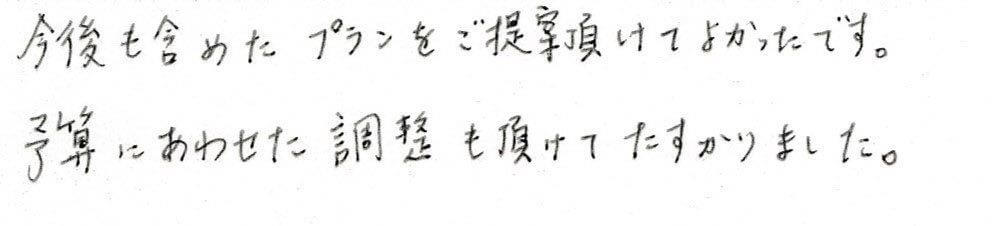 今後も含めたプランをご提案頂けてよかったです。
予算にあわせた調整も頂けてたすかりました。